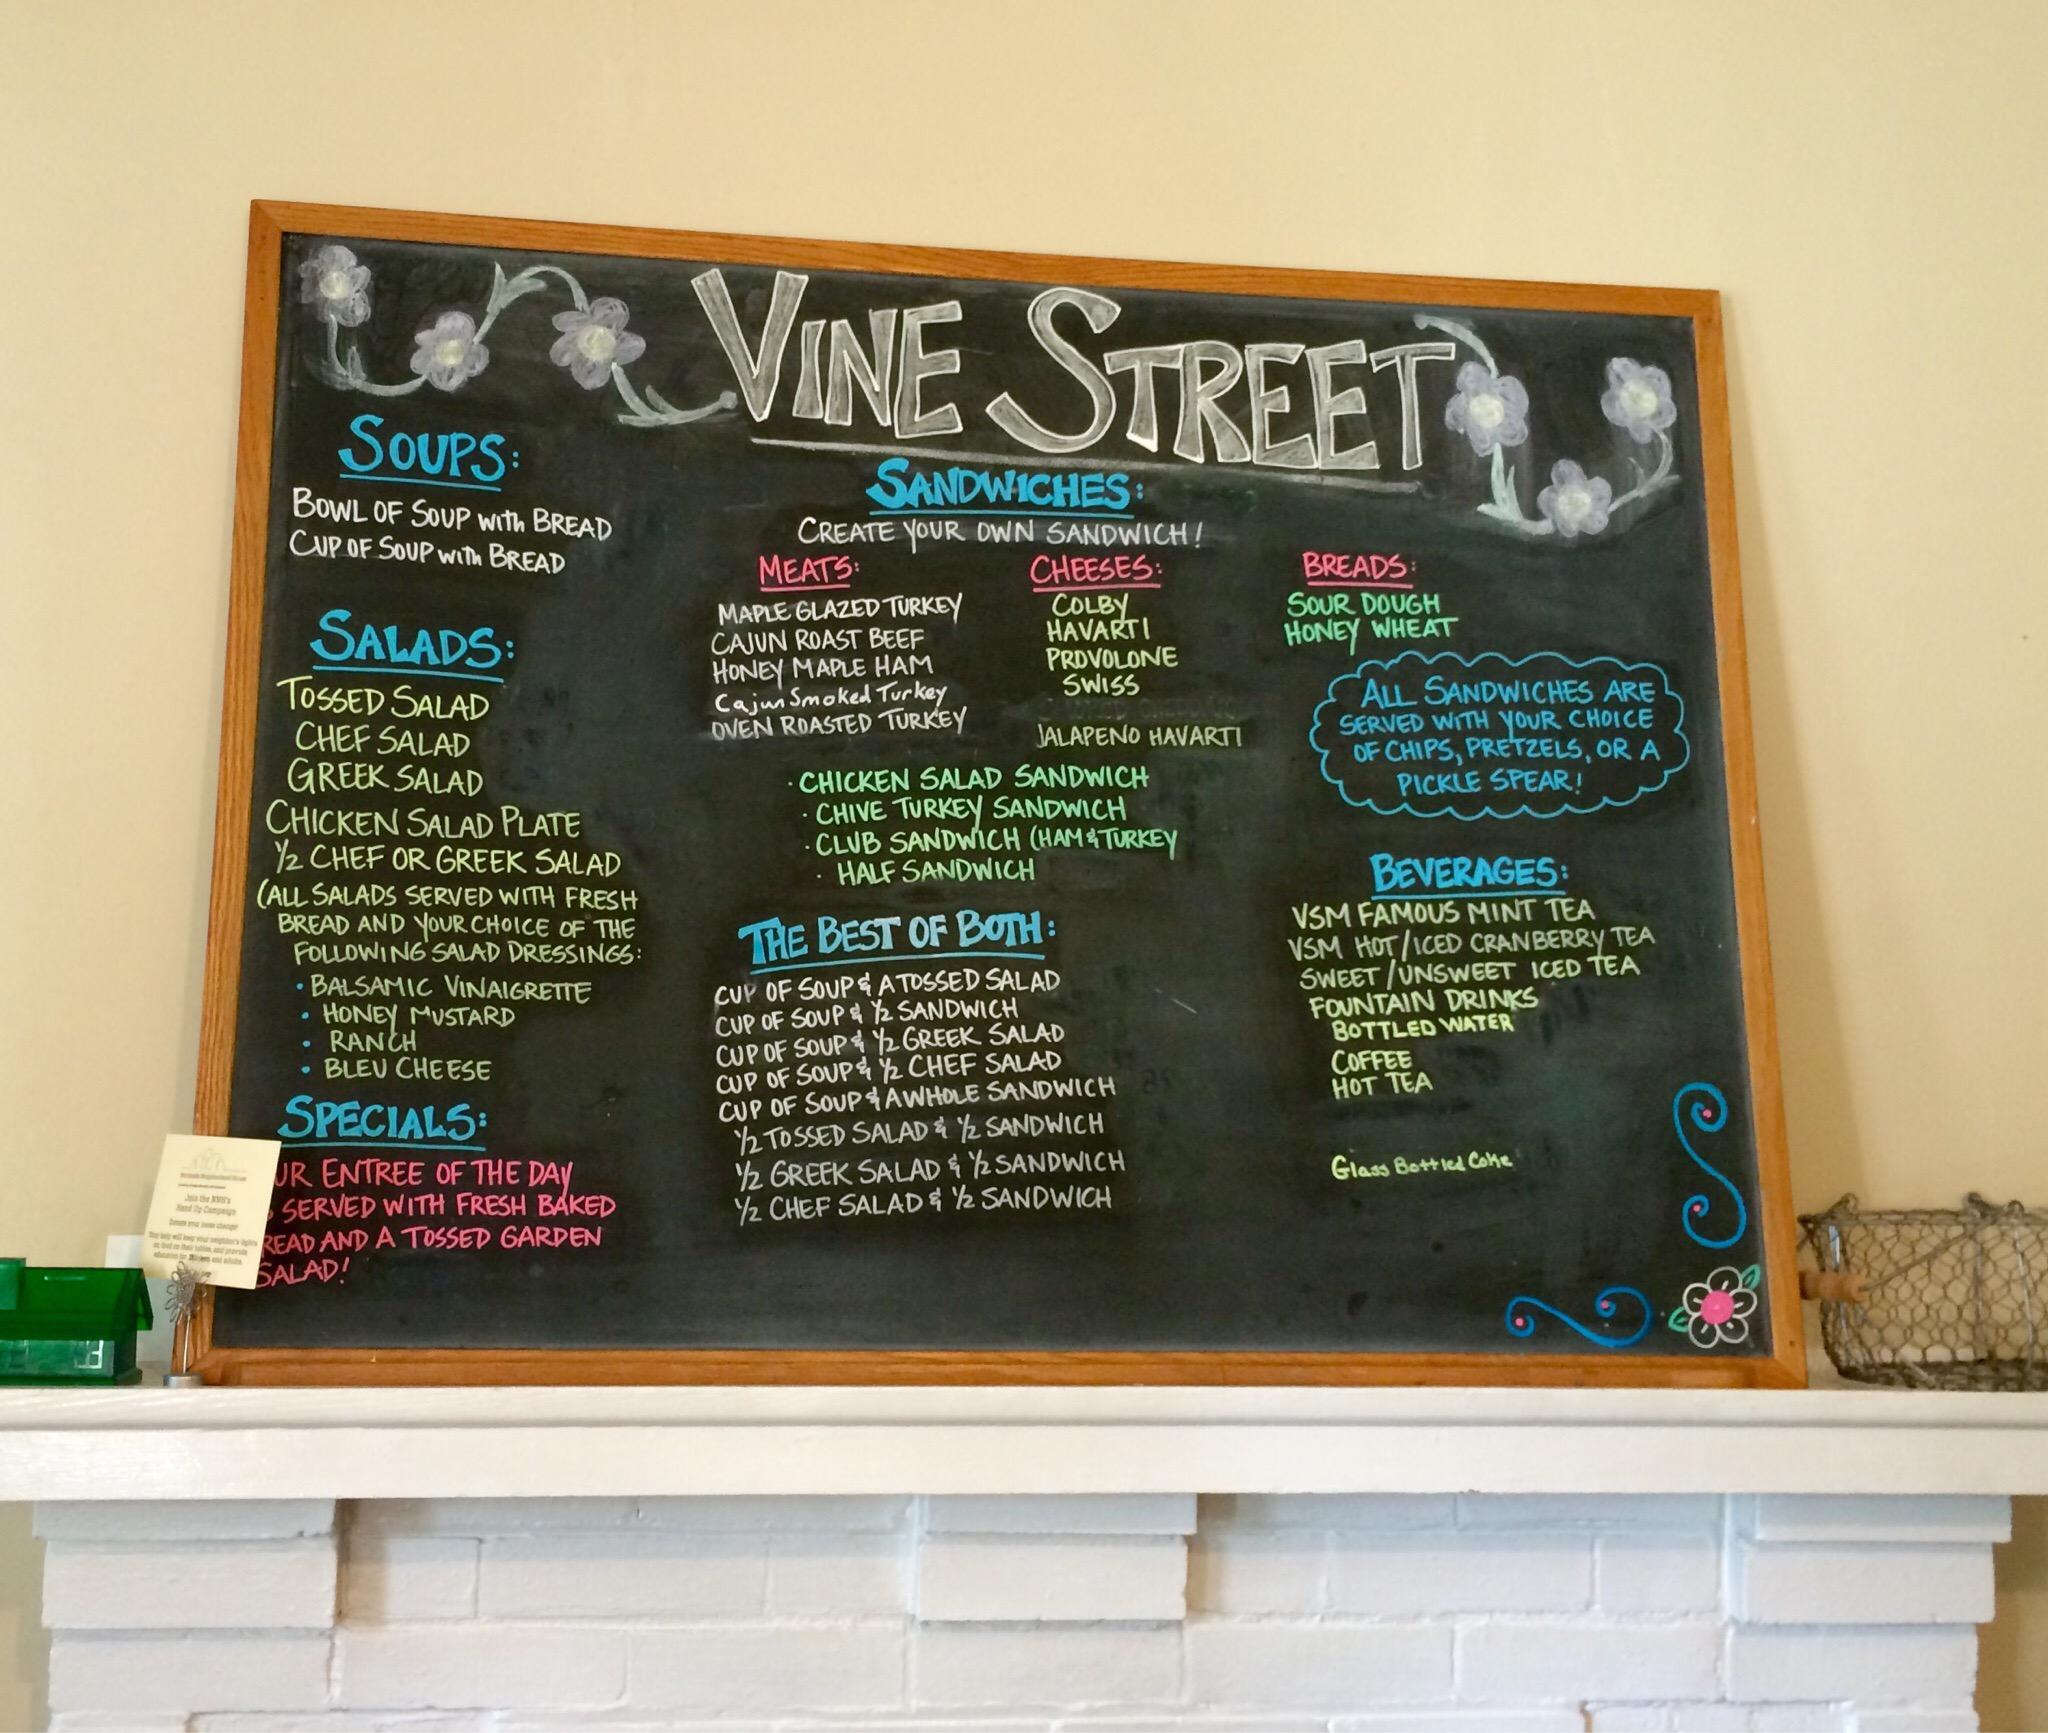 VINE STREET
SOUPS:
BOWL OF SOUP with BREAD
CUP OF SOUP with BREAD
SALADS:
TOSSED SALAD
CHEF SALAD
GREEK SALAD
CHICKEN SALAD PLATE
½ CHEF OR GREEK SALAD
(ALL SALADS SERVED WITH FRESH
BREAD AND YOUR CHOICE OF THE
FOLLOWING SALAD DRESSINGS:
• BALSAMIC VINAIGRETTE
• HONEY MUSTARD
• RANCH
• BLEU CHEESE
SPECIALS:
UR ENTREE OF THE DAY
SERVED WITH FRESH BAKED
READ AND A TOSSED GARDEN
SALAD!
SANDWICHES:
CREATE YOUR OWN SANDWICH!
MEATS:
MAPLE GLAZED TURKEY
CAJUN ROAST BEEF
HONEY MAPLE HAM
Cajun Smoked Turkey
OVEN ROASTED TURKEY
CHEESES:
COLBY
HAVARTI
PROVOLONE
SWISS
JALAPENO HAVARTI
BREADS:
SOUR DOUGH
HONEY WHEAT
ALL SANDWICHES ARE
SERVED WITH YOUR CHOICE
OF CHIPS, PRETZELS, OR A
PICKLE SPEAR!
· CHICKEN SALAD SANDWICH
· CHIVE TURKEY SANDWICH
· CLUB SANDWICH (HAM & TURKEY
· HALF SANDWICH
THE BEST OF BOTH:
CUP OF SOUP & A TOSSED SALAD
CUP OF SOUP & ½ SANDWICH
CUP OF SOUP & ½ GREEK SALAD
CUP OF SOUP & ½ CHEF SALAD
CUP OF SOUP & A WHOLE SANDWICH
½ TOSSED SALAD & ½ SANDWICH
½ GREEK SALAD & ½ SANDWICH
½ CHEF SALAD & ½ SANDWICH
BEVERAGES:
VSM FAMOUS MINT TEA
VSM HOT/ICED CRANBERRY TEA
SWEET/UNSWEET ICED TEA
FOUNTAIN DRINKS
BOTTLED WATER
COFFEE
HOT TEA
Glass Bottled Coke
Join the NNH's
Hand Up Campaign
Donate your loose change!